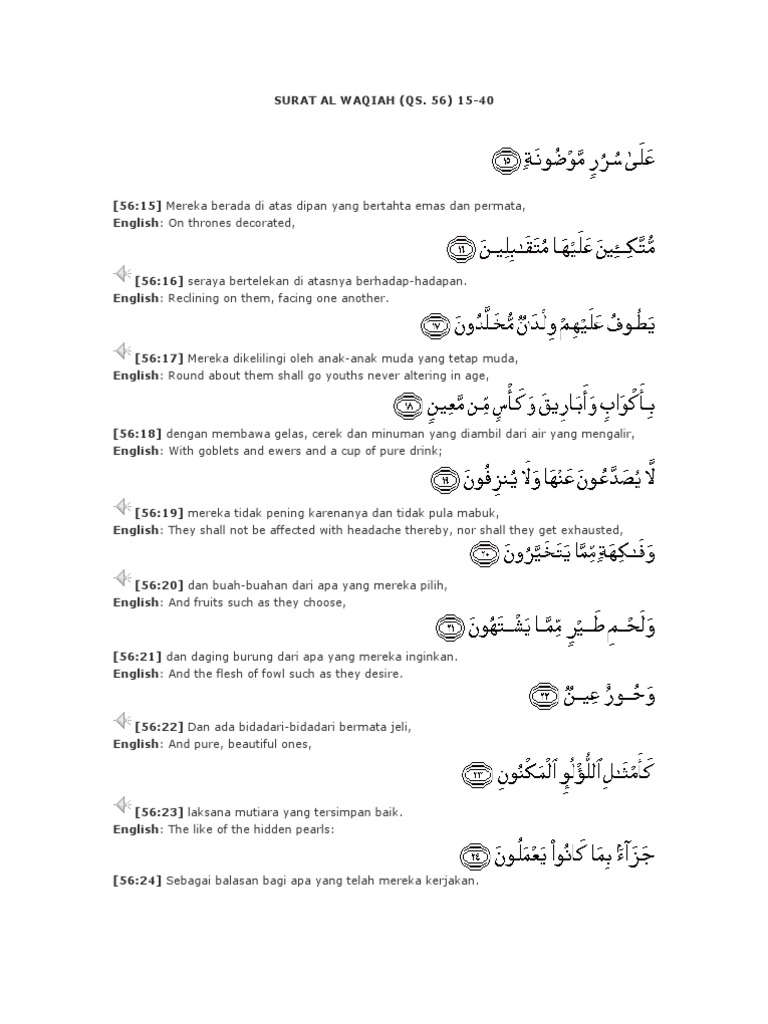 SURAT AL WAQIAH (QS. 56) 15-40
عَلَىٰ سُرُرٍ مَّوْضُونَةٍ ١٥
[56:15] Mereka berada di atas dipan yang bertahta emas dan permata,
English: On thrones decorated,
مُّتَّكِـِٔينَ عَلَيْهَا مُتَقَـٰبِلِينَ ١٦
[56:16] seraya bertelekan di atasnya berhadap-hadapan.
English: Reclining on them, facing one another.
يَطُوفُ عَلَيْهِمْ وِلْدَٰنٌ مُّخَلَّدُونَ ١٧
[56:17] Mereka dikelilingi oleh anak-anak muda yang tetap muda,
English: Round about them shall go youths never altering in age,
بِأَكْوَابٍ وَأَبَارِيقَ وَكَأْسٍ مِّن مَّعِينٍ ١٨
[56:18] dengan membawa gelas, cerek dan minuman yang diambil dari air yang mengalir,
English: With goblets and ewers and a cup of pure drink;
لَّا يُصَدَّعُونَ عَنْهَا وَلَا يُنزِفُونَ ١٩
[56:19] mereka tidak pening karenanya dan tidak pula mabuk,
English: They shall not be affected with headache thereby, nor shall they get exhausted,
وَفَـٰكِهَةٍ مِّمَّا يَتَخَيَّرُونَ ٢٠
[56:20] dan buah-buahan dari apa yang mereka pilih,
English: And fruits such as they choose,
وَلَحْمِ طَيْرٍ مِّمَّا يَشْتَهُونَ ٢١
[56:21] dan daging burung dari apa yang mereka inginkan.
English: And the flesh of fowl such as they desire.
وَحُورٌ عِينٌ ٢٢
[56:22] Dan ada bidadari-bidadari bermata jeli,
English: And pure, beautiful ones,
كَأَمْثَـٰلِ ٱللُّؤْلُؤِ ٱلْمَكْنُونِ ٢٣
[56:23] laksana mutiara yang tersimpan baik.
English: The like of the hidden pearls:
جَزَآءًۢ بِمَا كَانُوا۟ يَعْمَلُونَ ٢٤
[56:24] Sebagai balasan bagi apa yang telah mereka kerjakan.